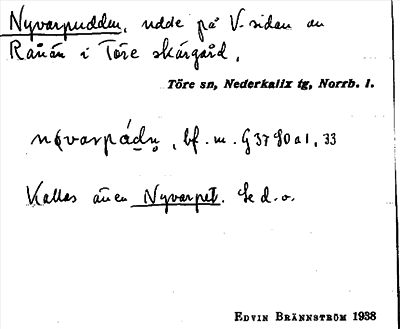 Nyvarpudden, udde på V-sidan av
Rånön i Töre skärgård.
Töre sn, Nederkalix tg, Norrb. l.
bf. m. G 37 80 a 1, 33
Kallas även Nyvarpet. Se d.o.
EDVIN BRÄNNSTRÖM 1938